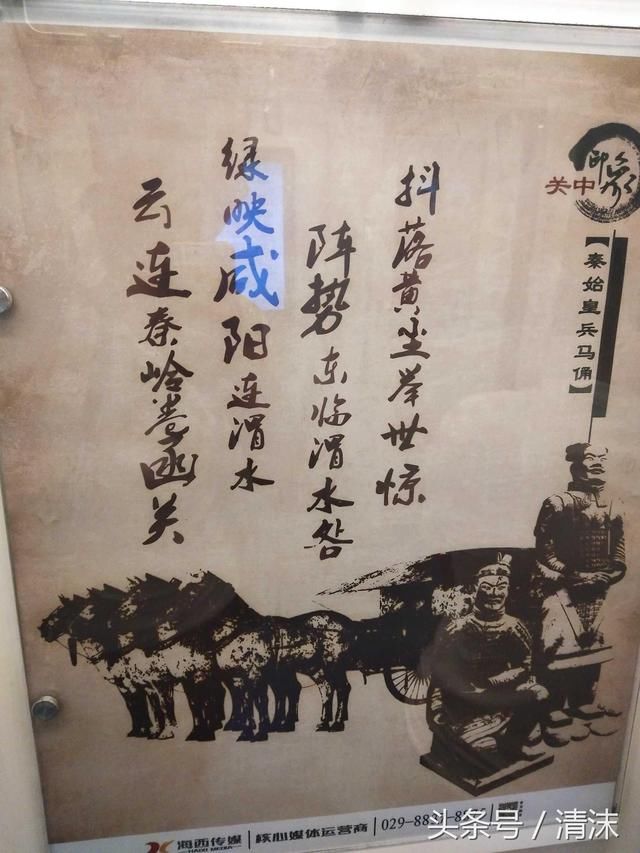 印象
关中
【秦始皇兵马俑】
抖落黄尘举世惊
阵势东临渭水
绿映咸阳连渭水
云连秦岭函关
海西传媒
HAIXI MEDIA
核心媒体运营商
头条号 / 清沫